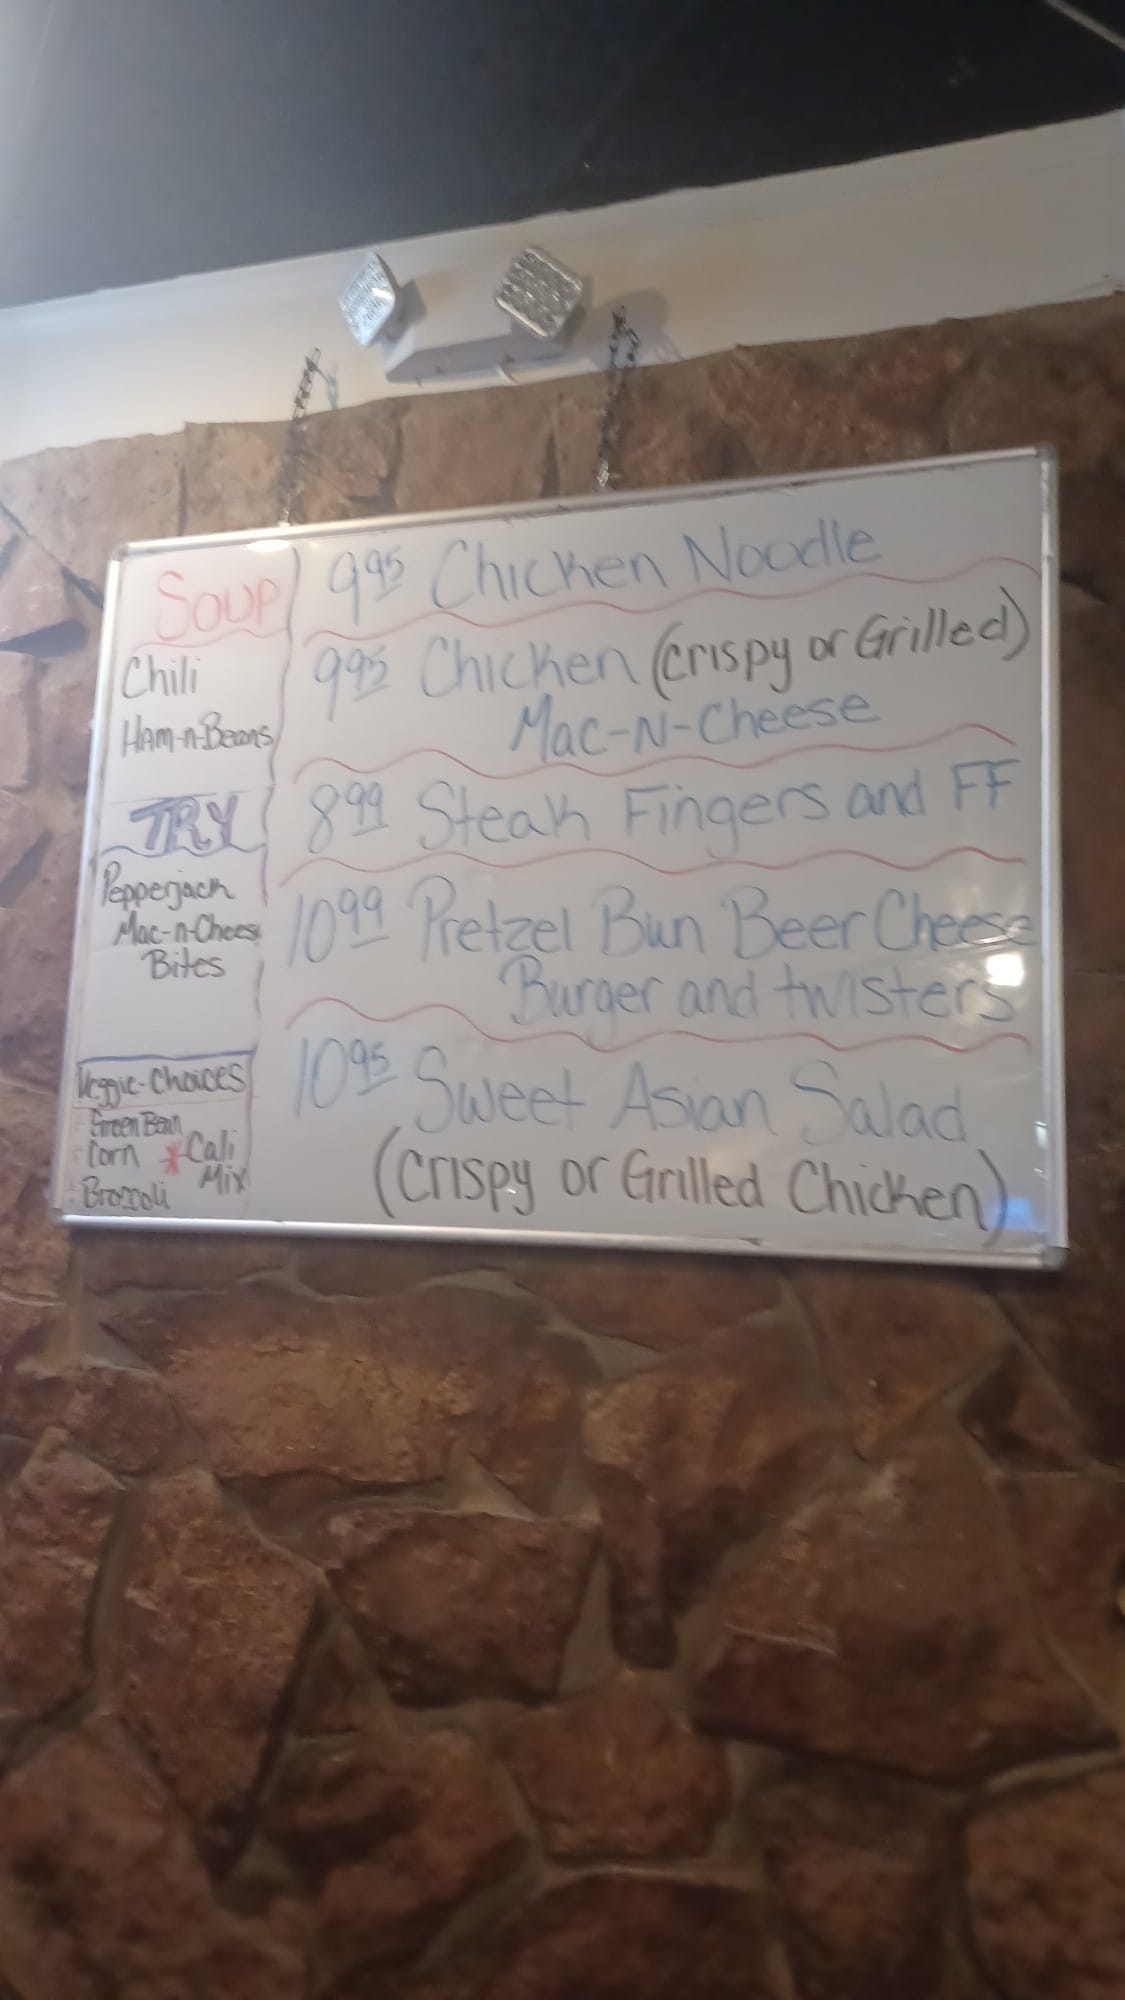 Soup
Chili
Ham-n-Beans
TRY
Pepperjack
Mac-n-Chees
Bites
Veggie-Choices
Green Bean
Corn *Cali
Mix
Broccoli
9.95 Chicken Noodle
9.95 Chicken (Crispy or Grilled)
Mac-N-Cheese
8.99 Steak Fingers and FF
10.99 Pretzel Bun Beer Cheese
Burger and twisters
10.95 Sweet Asian Salad
(Crispy or Grilled Chicken)